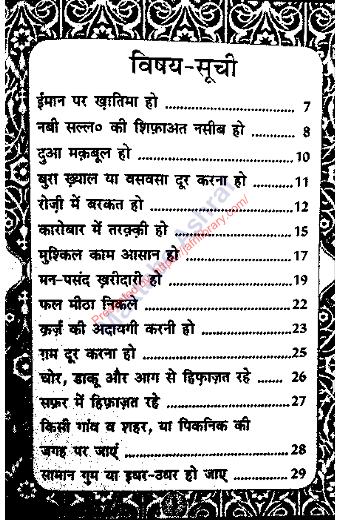 विषय-सूची
ईमान पर ख़ातिमा हो ........................................ 7
नबी सल्ल० की शिफ़ाअत नसीब हो ............ 8
दुआ मक़बूल हो ................................................ 10
बुरा ख़्याल या वसवसा दूर करना हो ............ 11
रोज़ी में बरकत हो ............................................ 12
कारोबार में तरक़्क़ी हो .................................... 15
मुश्किल काम आसान हो ................................ 17
मन-पसंद ख़रीदारी हो .................................... 19
फल मीठा निकले ............................................ 22
क़र्ज़ की अदायगी करनी हो ........................ 23
ग़म दूर करना हो ............................................ 25
चोर, डाकू और आग से हिफ़ाज़त रहे ....... 26
सफ़र में हिफ़ाज़त रहे .................................... 27
किसी गांव व शहर, या पिकनिक की
जगह पर जाएं ................................................ 28
सामान गुम या इधर-उधर हो जाए ............ 29